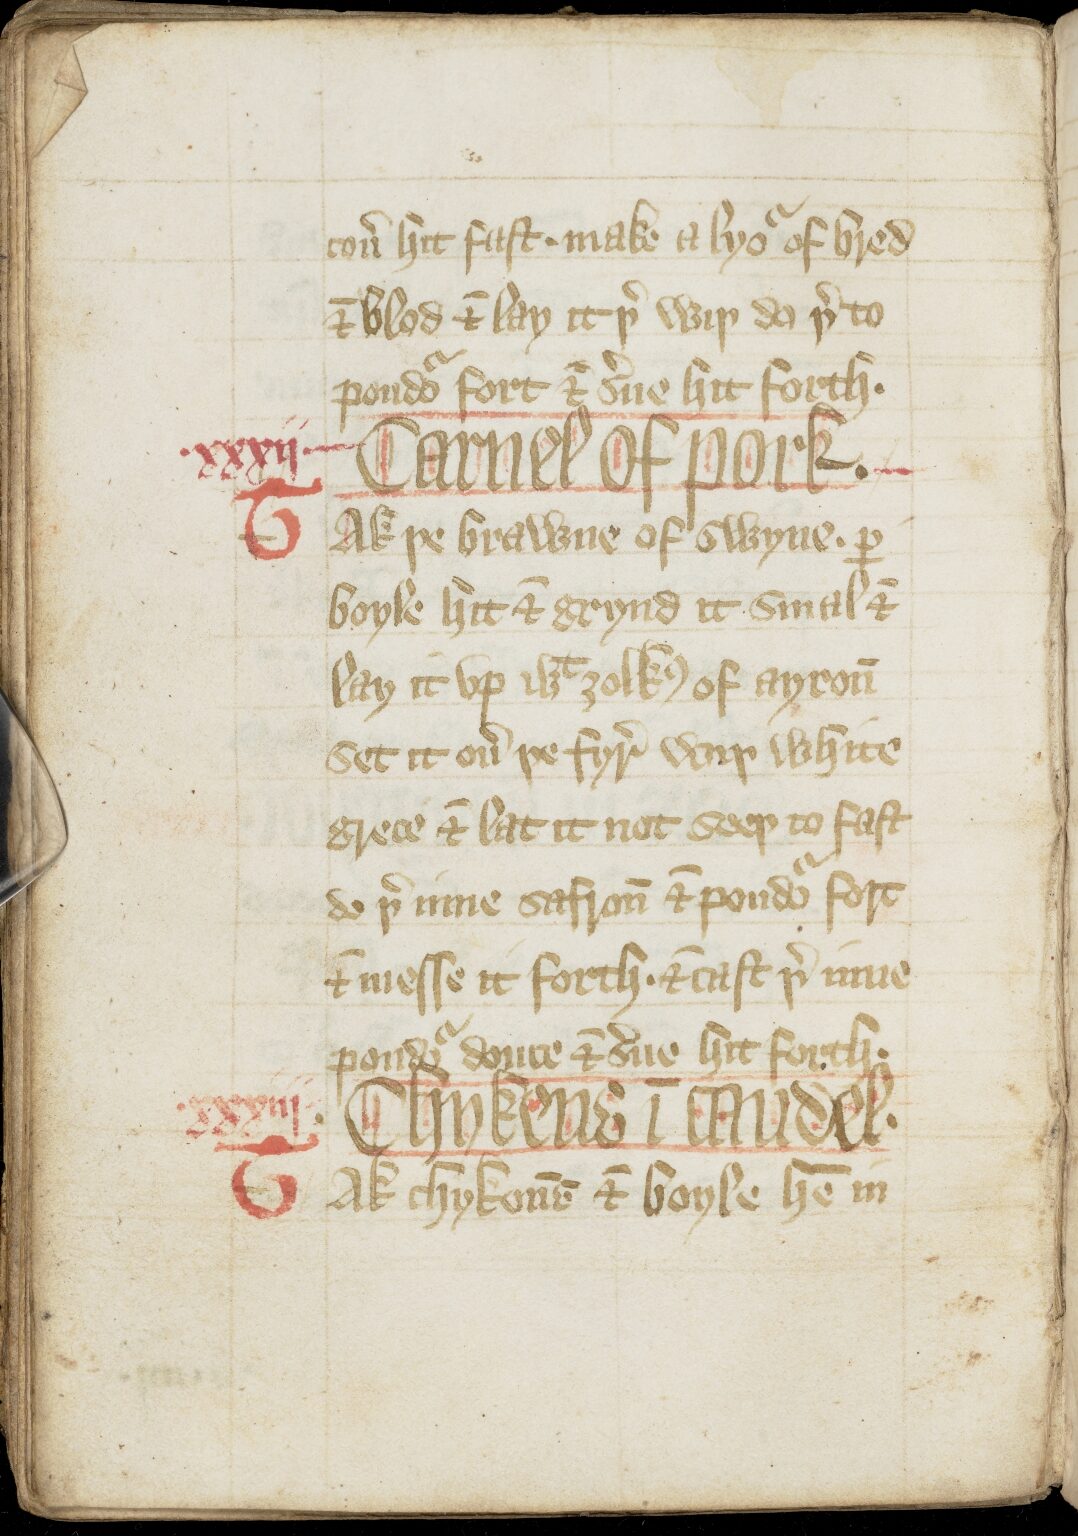 couẽ hit fast · make a lyoᵃ of bred
⁊ blod ⁊ lay it þ̉ wiþ do þ̉ to
poudoᵃ fort ⁊ s̉ue hit forth ·
·xxxij· Carnel of pork ·
Tak þe brawne of swyne · ꝑ
boyle hit ⁊ grynd it smal ⁊
lay it vp wᵗ ȝolkꝰ of ayroū
set it oủ þe fyr̉ wiþ white
grece ⁊ lat it not seeþ to fast
do þ̉ inne safroū ⁊ poudoᵃ fort
⁊ messe it forth · ⁊ cast þ̉ inne
poudoᵃ douce ⁊ s̉ue hit forth ·
·xxxiij· Chykens ī caudel ·
Tak chykoūe ⁊ boyle hē in